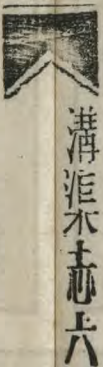 溝渠志六